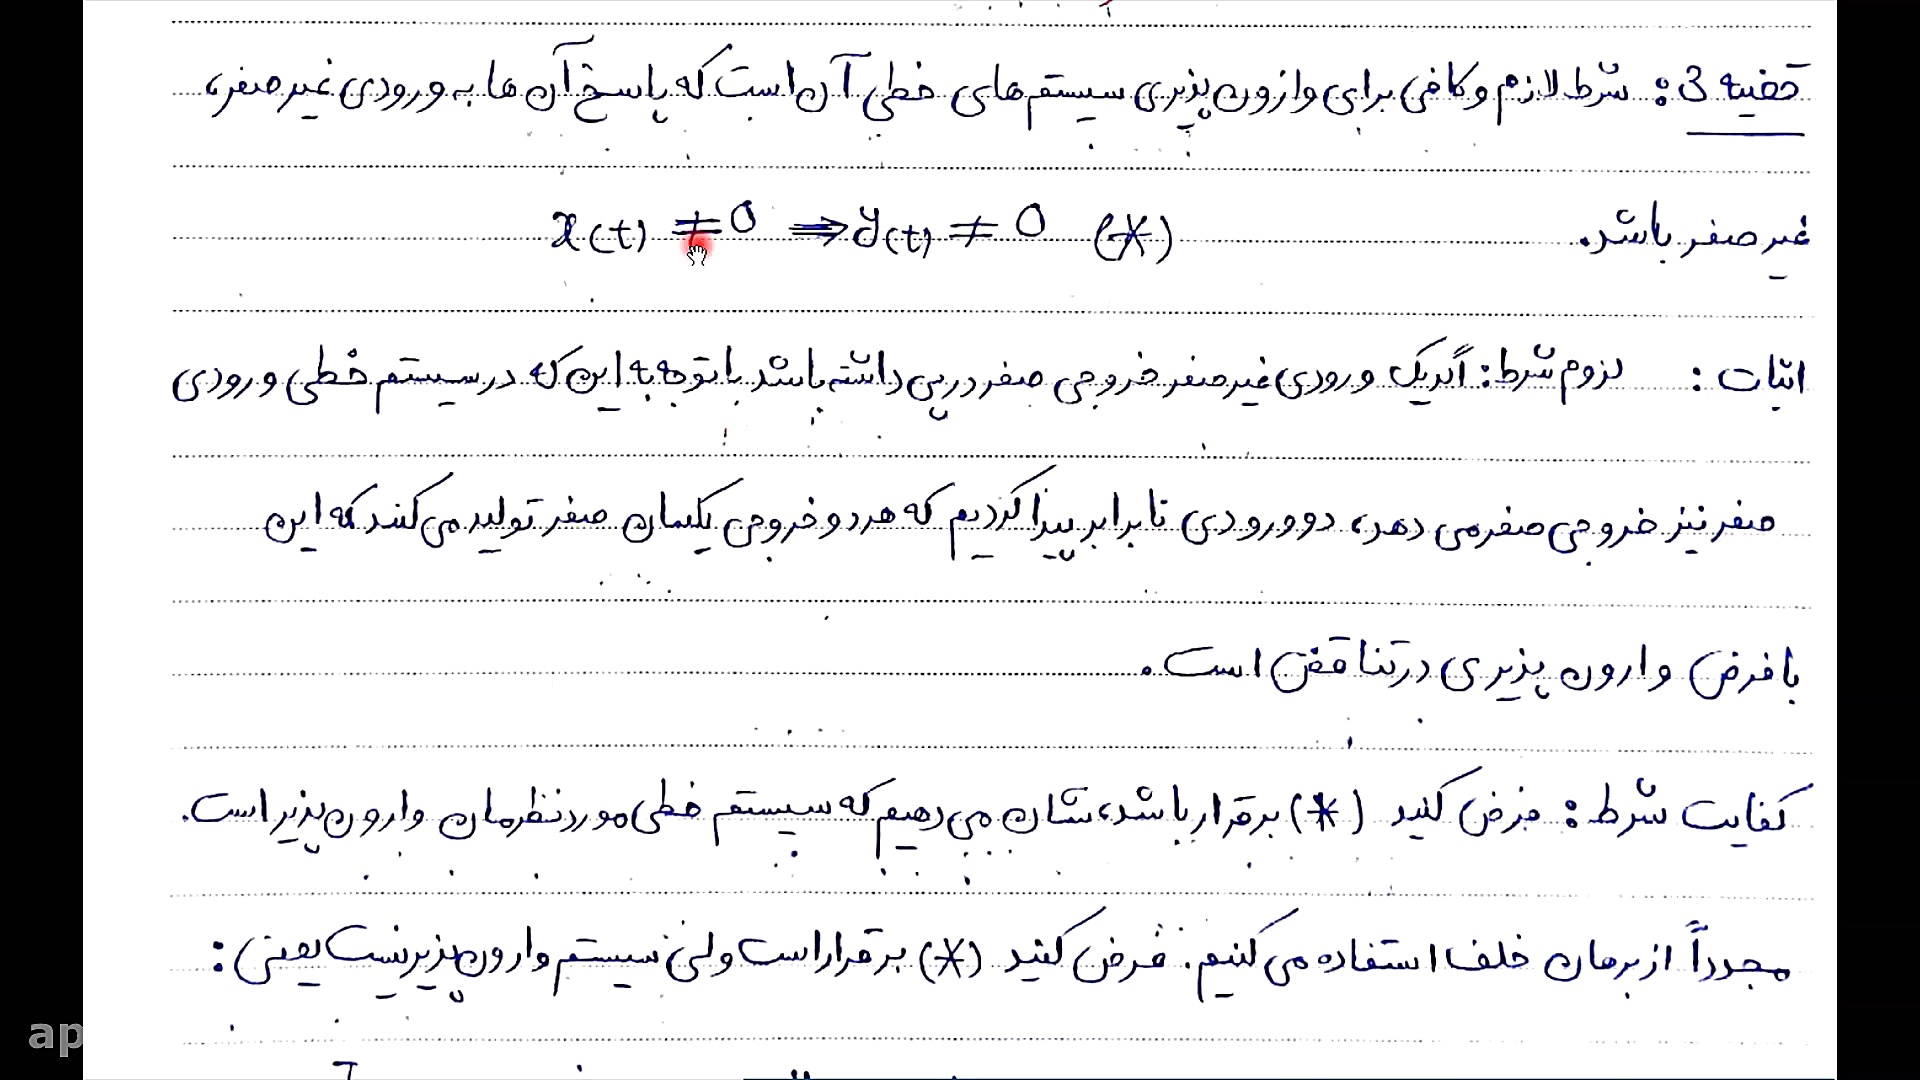 قضیه 3: شرط لازم و کافی برای وارون پذیری سیستم های خطی آن است که پاسخ آن ها به ورودی غیر صفر،
غیر صفر باشد. x(t) ≠ 0 ⟹ y(t) ≠ 0 (*)
اثبات: لزوم شرط: اگر یک ورودی غیر صفر خروجی صفر در پی داشته باشد با توجه به این که در سیستم خطی ورودی
صفر نیز خروجی صفر می دهد، دو ورودی نابرابر پیدا کردیم که هر دو خروجی یکسان صفر تولید می کنند که این
با فرض وارون پذیری در تناقض است.
کفایت شرط: فرض کنید (*) برقرار باشد، نشان می دهیم که سیستم خطی مورد نظرمان وارون پذیر است.
مجدداً از برهان خلف استفاده می کنیم. فرض کنید (*) برقرار است ولی سیستم وارون پذیر نیست یعنی:
ap